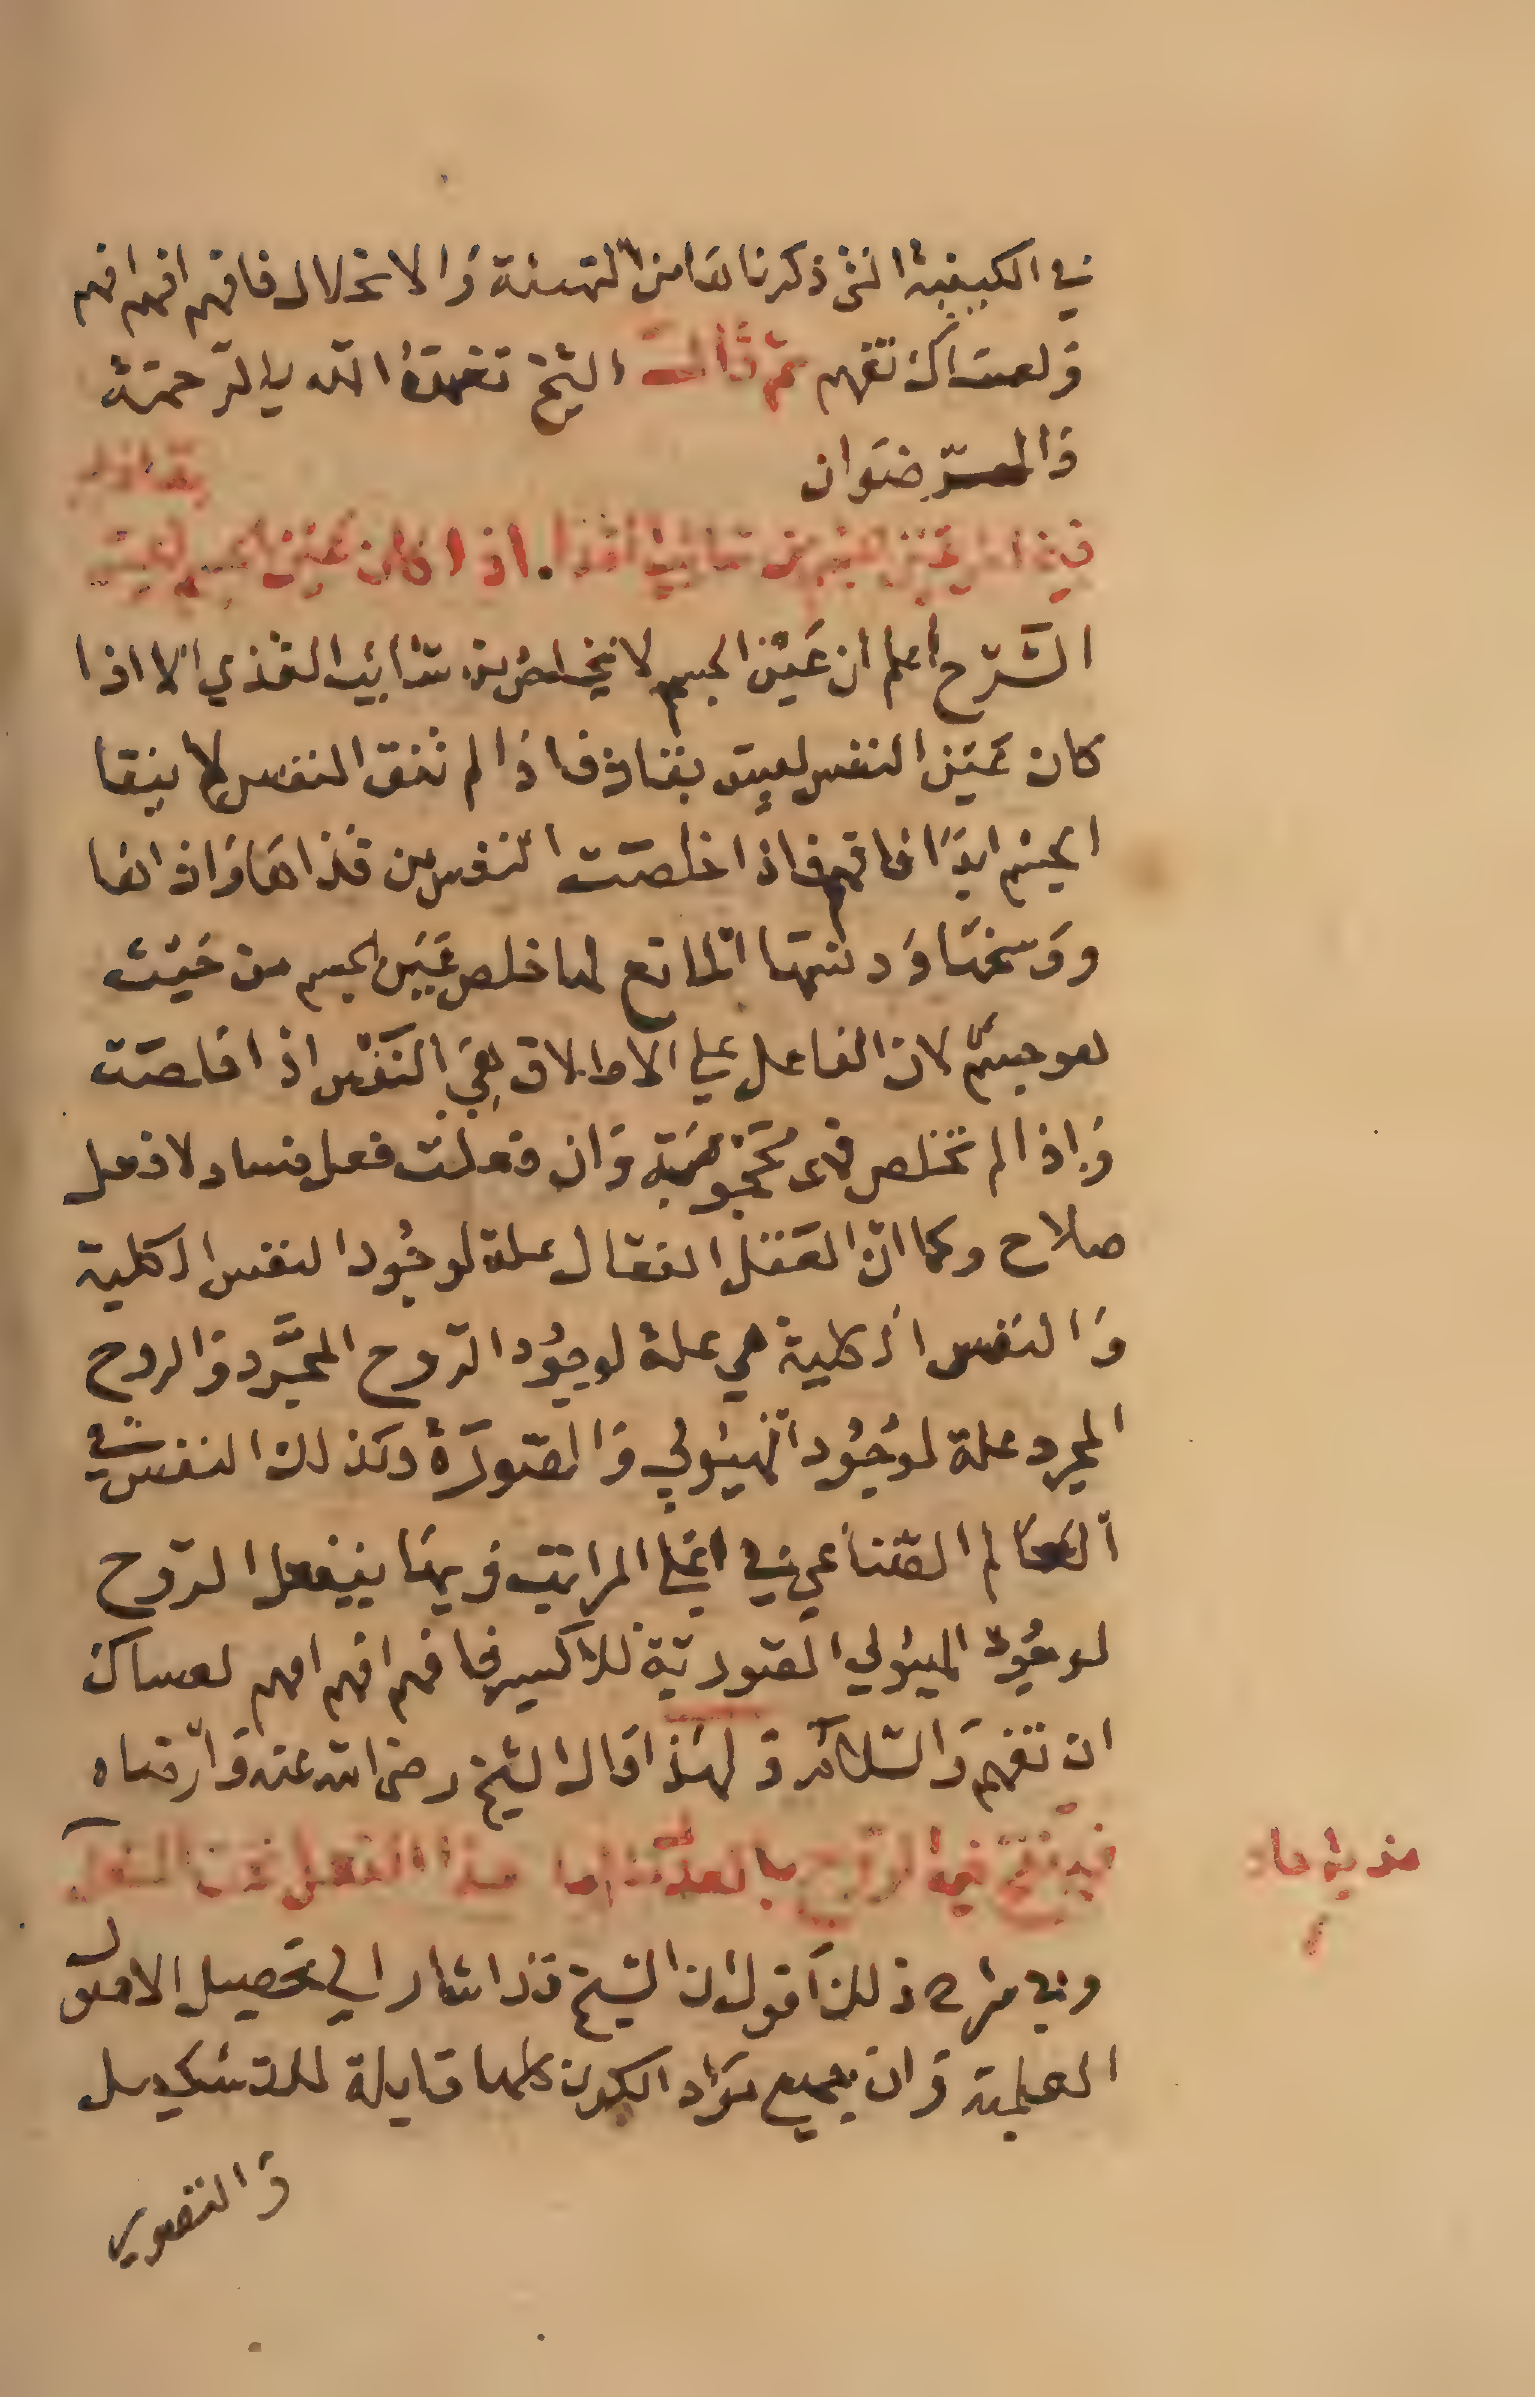 في الكيفية التى ذكرناها من التهيئة وَالانحلال فافهم افهم افهم
وَلعساك تفهم ثم قال الشيخ تغمدهُ الله بالرّحمة
وَالرّضوَان
بقذاة
اذا كان عين
الشَّرح اعلم ان عَيْن الجسم لا يخلص من شائبة القذي الا اذا
كان عَين النفس ليس بقذاة فاذا لم تنق النفس لا ينقا
الجسم ابدًا فافهم فاذا خلصَت النفس من قذاهَا وَاذاها
ووَسخهَا وَدنسهَا المانع لها خلص عَيَن الجسم من حَيْث
هو جسمٌ لان الفاعل علي الاطلاق هِيَ النَفْس اذا خلصَت
وَاذا لم تخلص فهى مَحجُوبَة وَان فعلت فعل فساد لا فعل
صلاح وكما انّ العَقل الفعّال علة لوجُود النفس الكلية
وَالنفس الكلية هي علة لوجُود الرّوح المجَرَّد وَالروح
المجرد علة لوُجُود الهَيُولي وَالصّورَة وكذلك النفس في
العَالم الصّناعي في اعلي المراتب وَبهَا ينفعل الرّوح
لوجُود الهيُولي الصّورية للاكسير فافهم افهم افهم لعساك
ان تفهم وَالسّلام وَلهَذا قال الشيخ رضى الله عنه وَارضاه
فينتج في الرّوح بالعدّ هذا الفعل
وفي شرح ذلك اقول ان الشيخ قد اشار الي تحصيل الاصول
العلمية وَان جميع مَوَاد الكون كلها قابلة للتشكيل
وَالتصوير